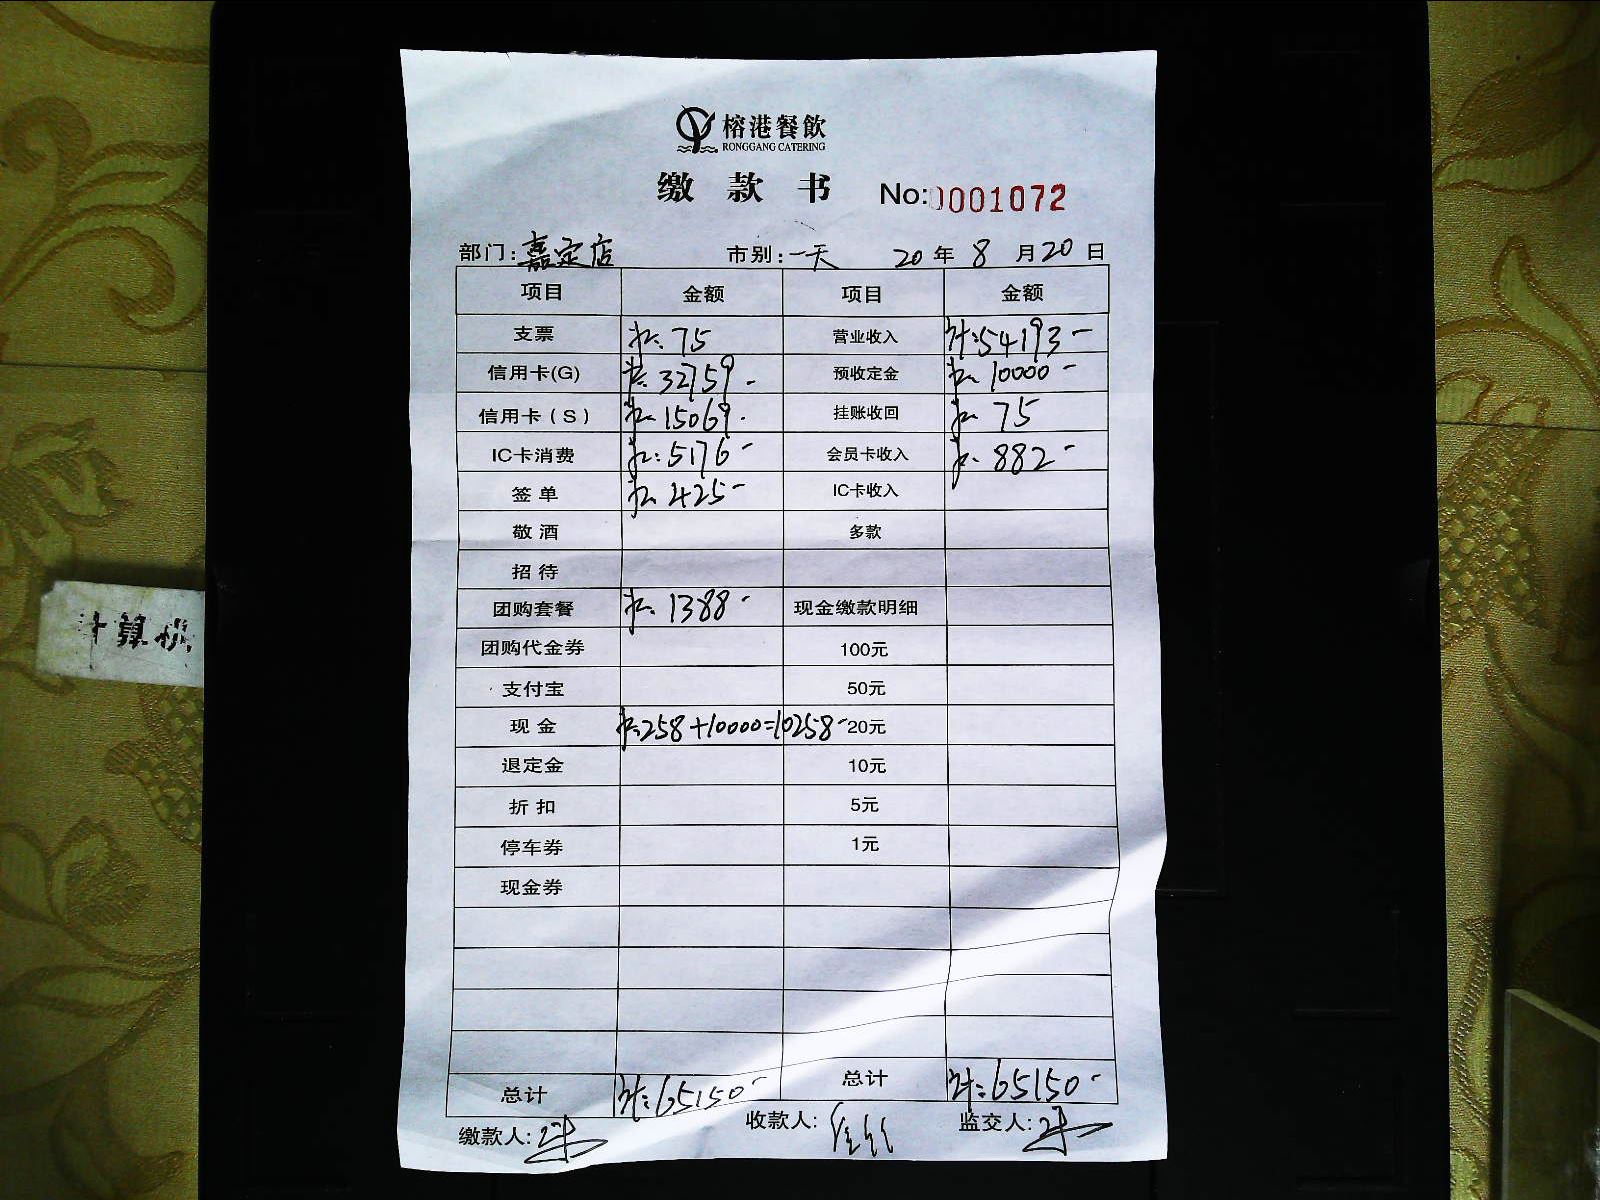 榕港餐飲
RONGGANG CATERING
缴款书 No:0001072
部门:嘉定店 市别:一天 20年8月20日
项目 金额 项目 金额
支票 75 营业收入 计:54193-
信用卡(G) 32759- 预收定金 10000-
信用卡(S) 15069- 挂账收回 75
IC卡消费 5176- 会员卡收入 882-
签单 425- IC卡收入
敬酒 多款
招待
团购套餐 1388- 现金缴款明细
团购代金券 100元
支付宝 50元
现金 258+10000=10258- 20元
退定金 10元
折扣 5元
停车券 1元
现金券
总计 计:65150- 总计 计:65150-
缴款人: 收款人: 监交人:
计算机